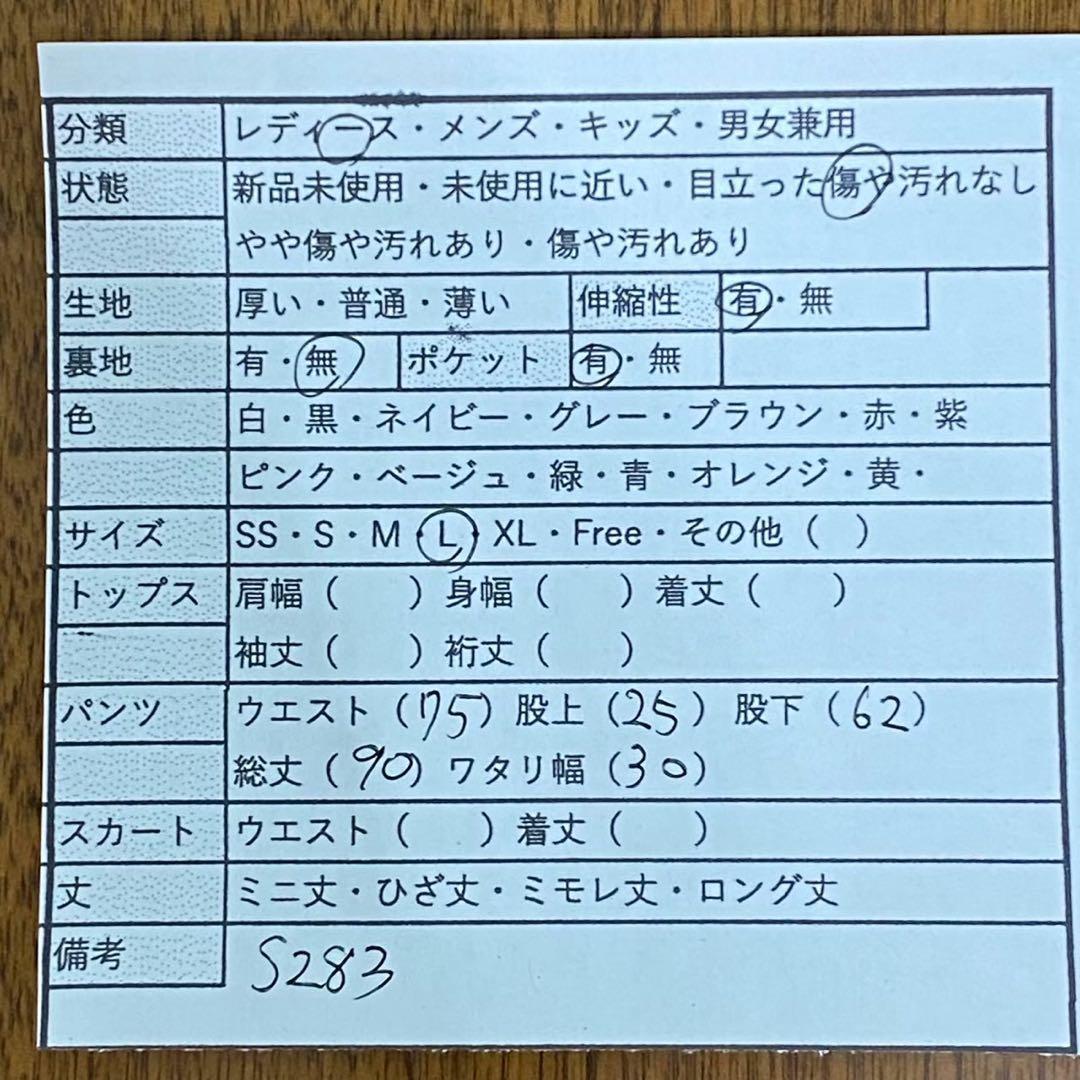 分類 レディース・メンズ・キッズ・男女兼用
状態 新品未使用・未使用に近い・目立った傷や汚れなし
やや傷や汚れあり・傷や汚れあり
生地 厚い・普通・薄い 伸縮性 有・無
裏地 有・無 ポケット 有・無
色 白・黒・ネイビー・グレー・ブラウン・赤・紫
ピンク・ベージュ・緑・青・オレンジ・黄・
サイズ SS・S・M・L・XL・Free・その他（ ）
トップス 肩幅（ ）身幅（ ）着丈（ ）
袖丈（ ）裄丈（ ）
パンツ ウエスト（75）股上（25）股下（62）
総丈（90）ワタリ幅（30）
スカート ウエスト（ ）着丈（ ）
丈 ミニ丈・ひざ丈・ミモレ丈・ロング丈
備考 S283